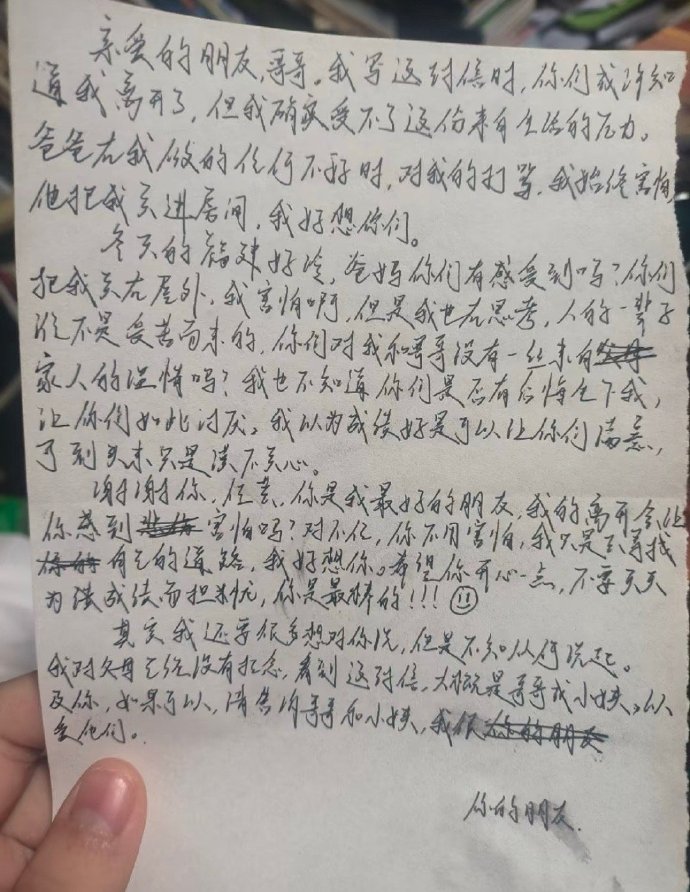 亲爱的朋友,哥哥。我写这封信时,你们或许知
道我离开了,但我确实受不了这份来自生活的压力。
爸爸在我做的任何不好时,对我的打骂,我始终害怕
他把我关进房间,我好想你们。
冬天的福建好冷,爸妈你们有感受到吗?你们
把我关在屋外,我害怕啊,但是我也在思考,人的一辈子
不是受苦而来的,你们对我和哥哥没有一丝来自
家人的温情吗?我也不知道你们是否有后悔生下我,
让你们如此讨厌。我以为成绩好是可以让你们满意,
可到头来只是漠不关心。
谢谢你,佳,你是我最好的朋友,我的离开会让
你感到害怕吗?对不起,你不用害怕,我只是去寻找
自己的道路,我好想你。希望你开心一点,不要天天
为读成绩而担忧,你是最棒的!!!
其实我还要很多想对你说,但是不知从何说起。
我对父母已经没有怀念,看到这封信,大概是哥哥或小姨,以
及你,如果可以,请告诉哥哥和小姨,我很
爱他们。
你的朋友.